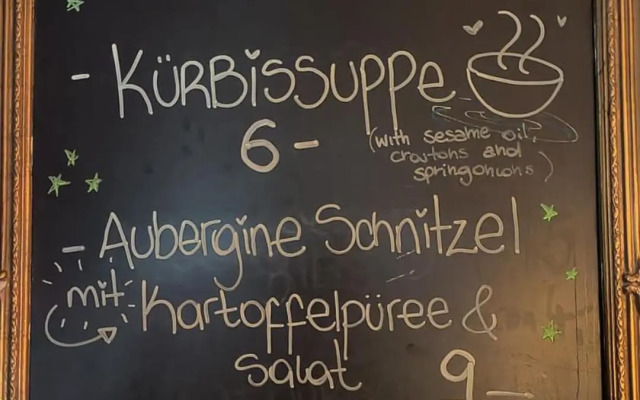 - KÜRBiSSUPPE
6-
(with sesame oil,
croutons and
springonions)
- Aubergine Schnitzel
mit Kartoffelpüree &
Salat 9-